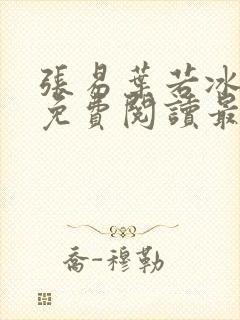 張易葉若冰
免費閱讀最
喬-穆勒